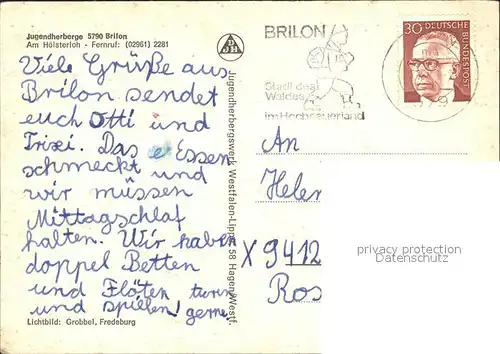 Jugendherberge 5790 Brilon
Am Hölsterloh - Fernruf: (02961) 2281
Viele Grüße aus
Brilon sendet
euch Otti und
Trixi. Das Essen
schmeckt und
wir müssen
Mittagschlaf
halten. Wir haben
doppel Betten
und Flöten turnen
und spielen gerne!
Lichtbild: Grobbel, Fredeburg
Jugendherbergswerk Westfalen-Lippe, 58 Hagen/Westf.
BRILON
Stadt des
Waldes
im Hochsauerland
30 DEUTSCHE BUNDESPOST
An
Helen
X 9412
Ros
privacy protection
Datenschutz